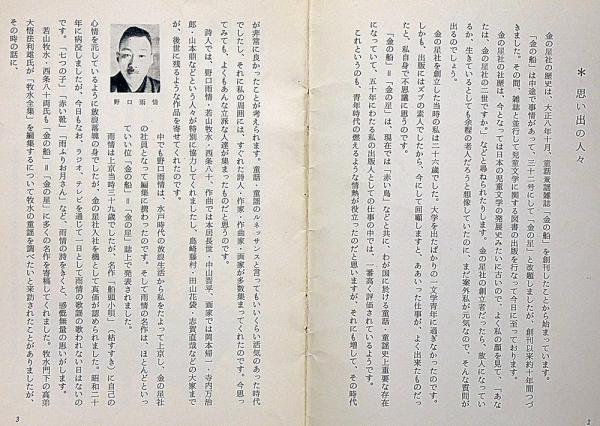 ＊ 思い出の人々
金の星社の歴史は、大正八年十月、童話童謡雑誌「金の船」を創刊したことから始まっています。
「金の船」は中途で事情があって、三十二号にして「金の星」と改題しましたが、創刊以来約十年間つづ
きました。その間、雑誌と並行して児童文学に関する図書の出版を行なって今日に至っております。
金の星社の社歴は、今となっては日本の児童文学の発展史みたいに古いので、よく私の顔を見て、「あな
たは、金の星社の二世ですか。」などと尋ねられたりします。金の星社の創立者だったら、故人になってい
るか、生きているとしても余程の老人だろうと想像していたのに、まだ案外私が元気なので、そんな質問が
出るのでしょう。
金の星社を創立した当時の私は二十六歳でした。大学を出たばかりの一文学青年に過ぎなかったのです。
しかも、出版にはズブの素人でしたから、今にして回顧しますと、ああいった仕事が、よく出来たものだっ
たと、私自身で不思議に思うのです。
「金の船」＝「金の星」は、現在では「赤い鳥」などと共に、わが国に於ける童話・童謡史上重要な存在
になっていて、五十年にわたる私の出版人としての仕事の中では、一番高く評価されているようです。
これというのも、青年時代の燃えるような情熱が役立ったのだと思いますが、それにも増して、その時代
2
が非常に良かったことが考えられます。童話・童謡のルネッサンスと言ってもいいくらい活気のあった時代
でしたし、それに私の周囲には、すぐれた詩人・作家・作曲家・画家が多数集まってくれたのです。今思っ
てみても、よくもあんな立派な人達が集まったものだと思うのです。
詩人では、野口雨情・若山牧水・西条八十、作曲では本居長世・中山晋平、画家では岡本帰一・寺内万治
郎・山本鼎などという人々が特別に協力してくれましたし、島崎藤村・田山花袋・志賀直哉などの大家まで
が、後世に残るような作品を寄せてくれたのです。
中でも野口雨情は、水戸時代の放浪生活から私をたよって上京し、金の星社
の社員となって編集に携わったのです。そして雨情の名作は、ほとんどといっ
ていい位「金の船」＝「金の星」誌上で発表されました。
雨情は上京当時三十九歳でしたが、名作「船頭小唄」（枯すすき）に自己の
心情を託しているように放浪落魄の身でしたが、金の星社入社を機として真価が認められました。昭和二十
年に病没しましたが、今日もなお、ラジオ、テレビを通じて一日として雨情の歌謡の歌われない日はないの
です。「七つの子」「赤い靴」「雨ふりお月さん」など、雨情の詩をきくと、感慨無量の思いがします。
若山牧水・西条八十両氏も「金の船」＝「金の星」に多くの名作を寄稿してくれました。牧水門下の高弟
大悟法利雄氏が「牧水全集」を編集するについて牧水の童謡を調べたいと来訪されたことがありましたが、
その時の話に、
野口雨情
3